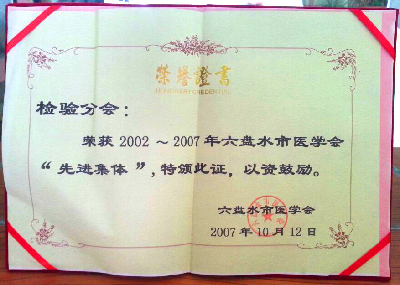 荣誉證書
检验分会：
荣获 2002 ～ 2007 年六盘水市医学会
“先进集体”，特颁此证，以资鼓励。
六盘水市医学会
2007 年 10 月 12 日